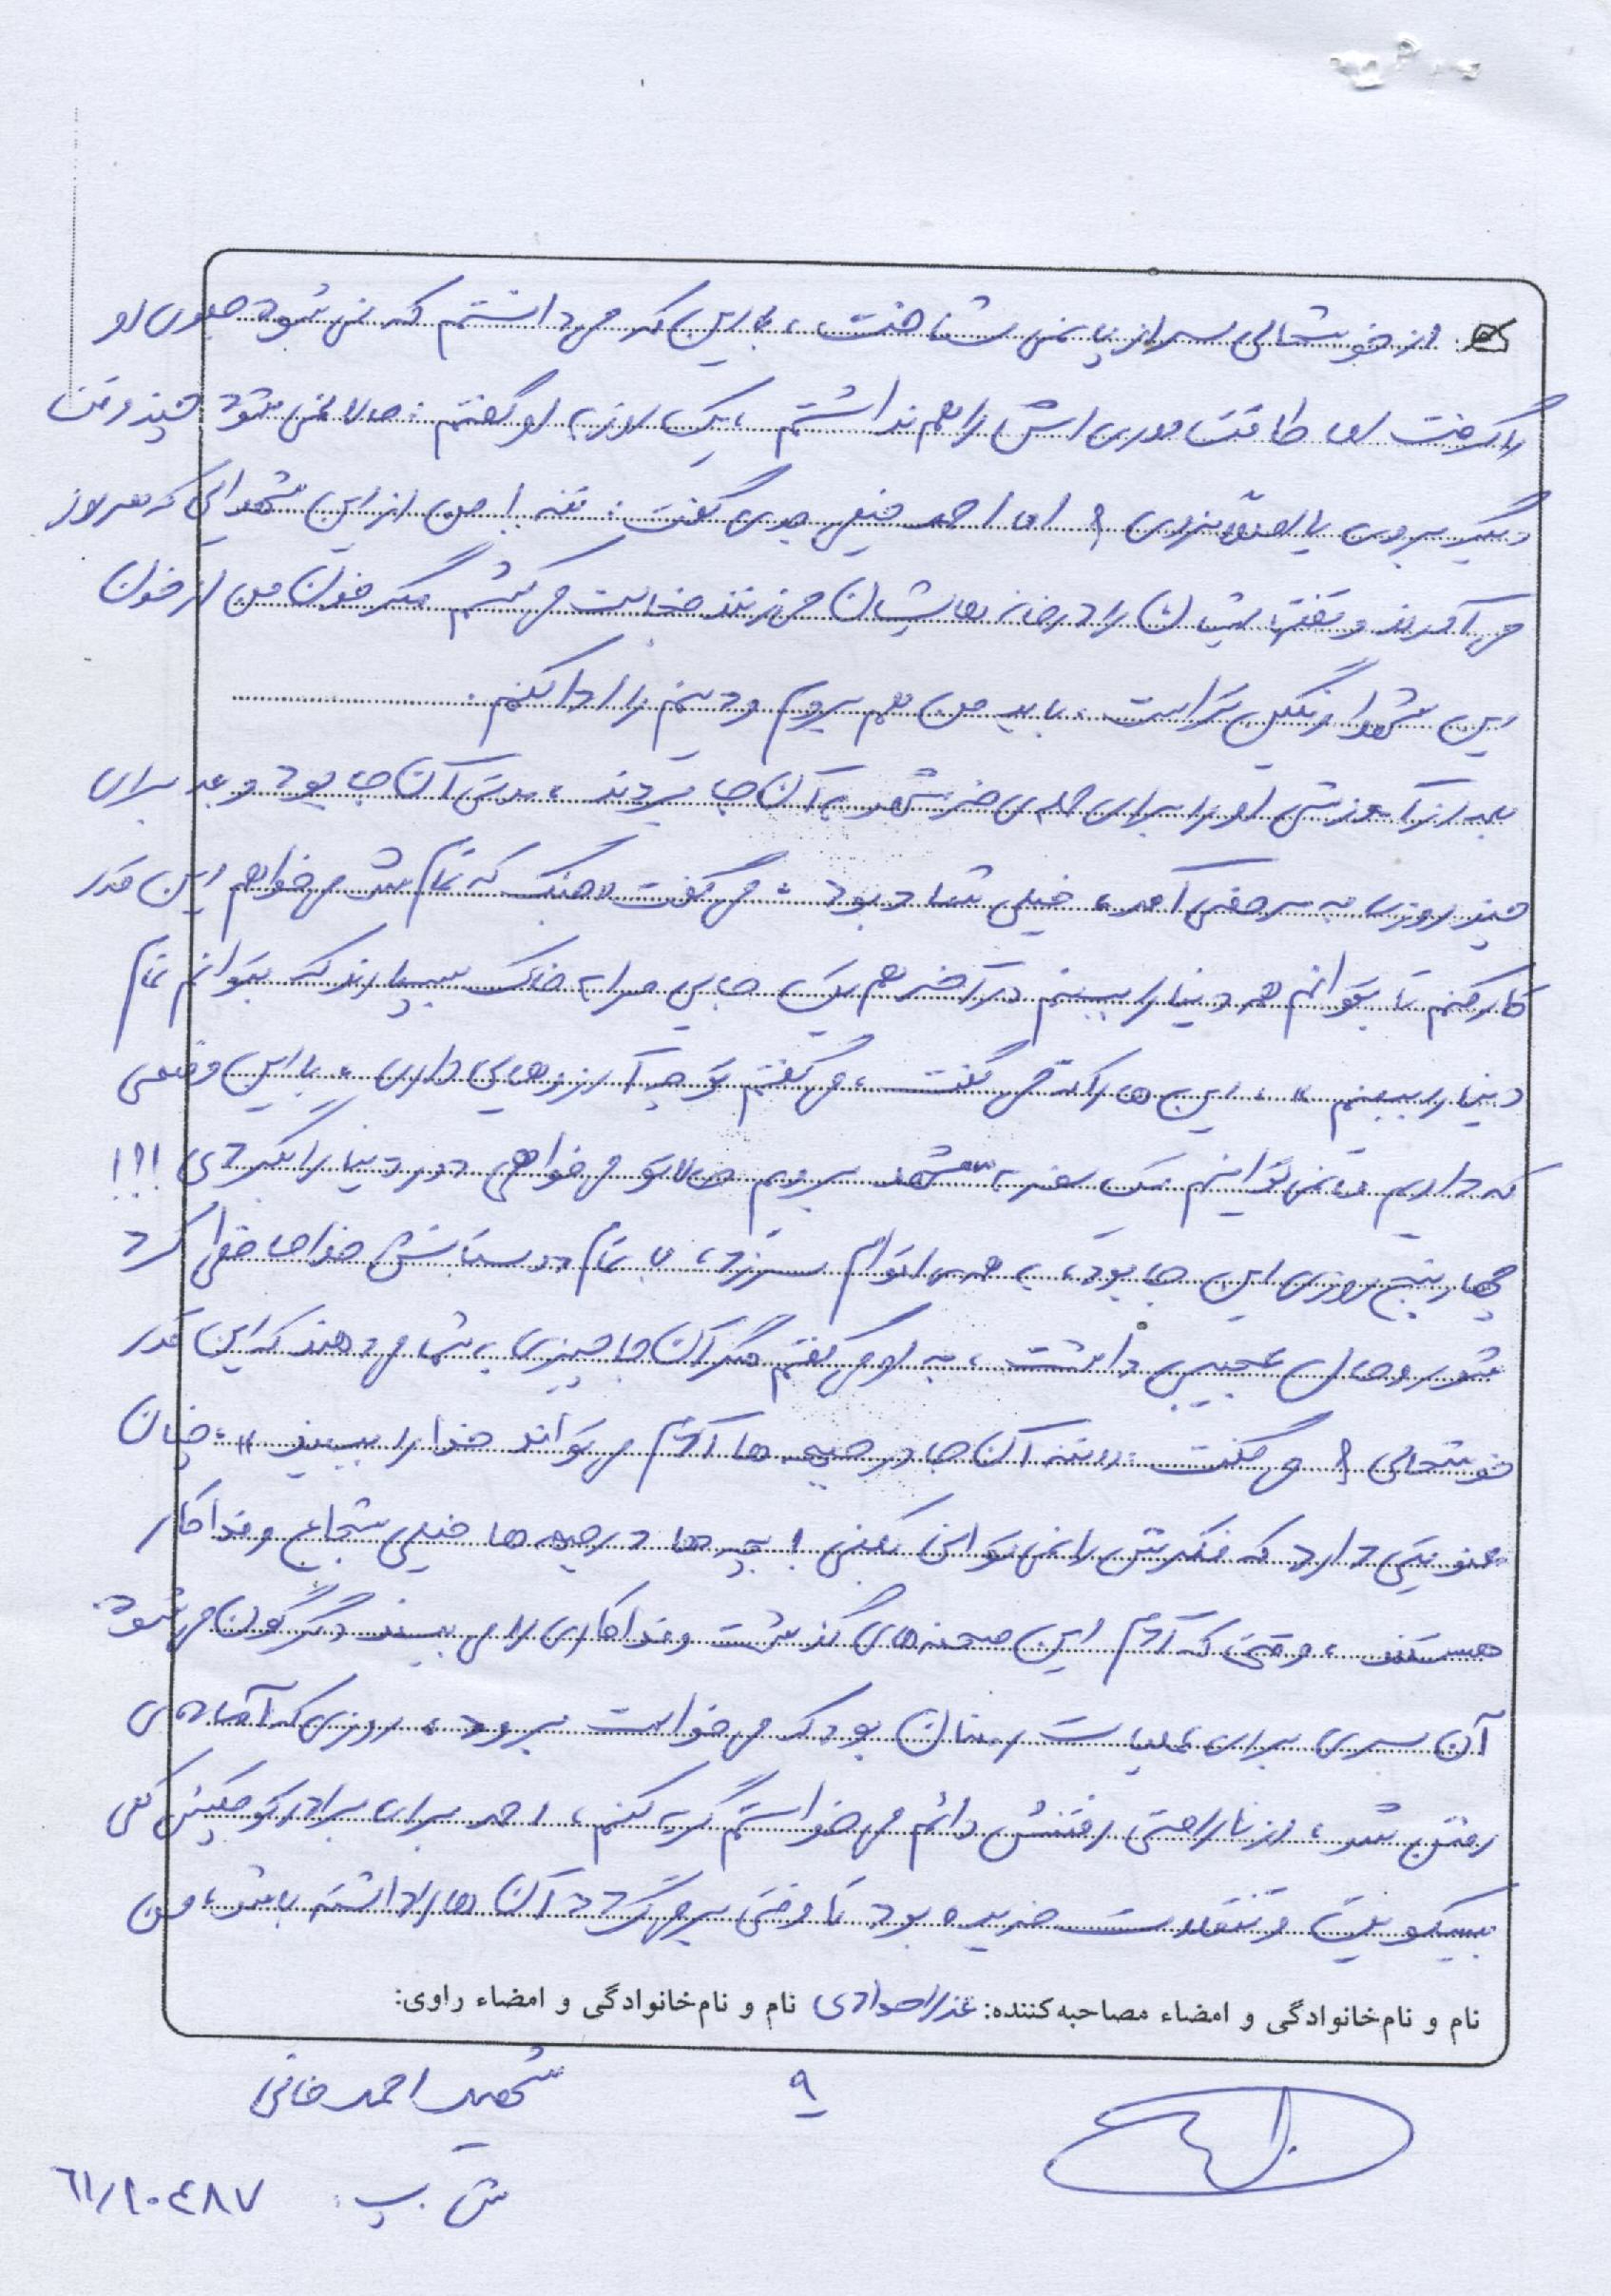 از خوشحالی سر از پا نمی شناخت، با این که می دانستم که نمی شود جلوی او
را گرفت اما طاقت دوری اش را هم نداشتم، یک روز به او گفتم: حالا نمی شود چند وقت
دیگر بروی یا اصلاً نروی؟ اما احمد خیلی جدی گفت: ننه! من از این شهدایی که هر روز
می آورند و تفنگهایشان را در خانه هایشان می زنند خجالت می کشم مگر خون من از خون
این شهدا رنگین تر است، باید من هم بروم و دینم را ادا کنم.
بعد از آموزش او را برای حمله ی خرمشهر به آن جا بردند، مدتی آن جا بود و بعد برای
چند روزی به مرخصی آمد، خیلی شاد بود: می گفت «جنگ که تمام شد می خواهم این قدر
کار کنم تا بتوانم همه دنیا را ببینم در آخر هم یک جایی مرا به خاک بسپارند که بتوانم تمام
دنیا را ببینم»، این ها را که می گفت، می گفتم تو چه آرزوهایی داری، با این وضعی
که داریم ما نمی توانیم یک سفر به مشهد برویم حالا تو می خواهی دور دنیا را بگردی!؟!
چهار پنج روزی این جا بود، به همه ی اقوام سر زد، با تمام دوستانش خداحافظی کرد
شور و حال عجیبی داشت، به او می گفتم مگر آن جا چیزی به شما می دهند که این قدر
خوشحالی؟ می گفت: «ننه آن جا در جبهه ها آدم می تواند خدا را ببیند»، چنان
معنویتی دارد که فکرش را نمی توانی بکنی! بچه ها در جبهه ها خیلی شجاع و فداکار
هستند، وقتی که آدم این صحنه های گذشت و فداکاری را می بیند دگرگون می شود.
آن سری برای عملیات رمضان بود که می خواست برود، روزی که آماده ی
رفتن شد، از ناراحتی رفتنش دائم می خواستم گریه کنم، احمد برای برادر کوچکش کلی
بیسکویت و تنقلات خریده بود تا وقتی برمی گردد آن ها را داشته باشد، من
نام و نام‌خانوادگی و امضاء مصاحبه‌کننده: عذرا مرادی نام و نام‌خانوادگی و امضاء راوی:
۹
شهید احمد خانی
ش. پ: ۶۱/۱۰۴۸۷